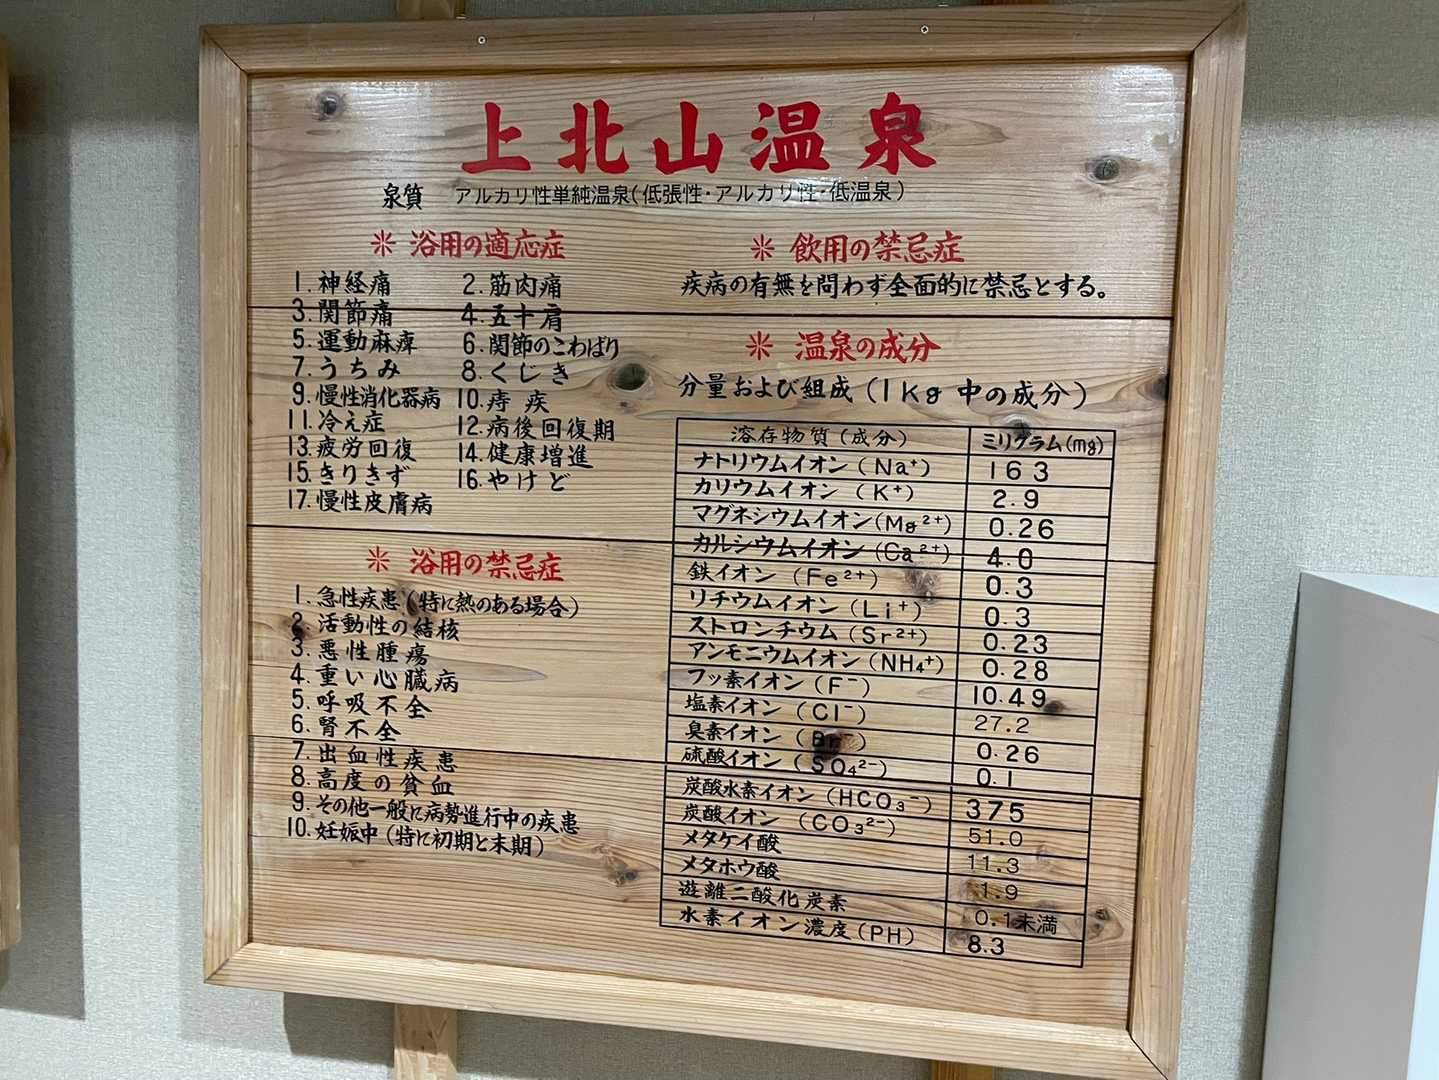 上北山温泉
泉質 アルカリ性単純温泉(低張性・アルカリ性・低温泉)
＊ 浴用の適応症
1. 神経痛 2. 筋肉痛
3. 関節痛 4. 五十肩
5. 運動麻痺 6. 関節のこわばり
7. うちみ 8. くじき
9. 慢性消化器病 10. 痔疾
11. 冷え症 12. 病後回復期
13. 疲労回復 14. 健康増進
15. きりきず 16. やけど
17. 慢性皮膚病
＊ 浴用の禁忌症
1. 急性疾患(特に熱のある場合)
2. 活動性の結核
3. 悪性腫瘍
4. 重い心臓病
5. 呼吸不全
6. 腎不全
7. 出血性疾患
8. 高度の貧血
9. その他一般に病勢進行中の疾患
10. 妊娠中(特に初期と末期)
＊ 飲用の禁忌症
疾病の有無を問わず全面的に禁忌とする。
＊ 温泉の成分
分量および組成(1kg中の成分)
溶存物質(成分) ミリグラム(mg)
ナトリウムイオン(Na⁺) 163
カリウムイオン(K⁺) 2.9
マグネシウムイオン(Mg²⁺) 0.26
カルシウムイオン(Ca²⁺) 4.0
鉄イオン(Fe²⁺) 0.3
リチウムイオン(Li⁺) 0.3
ストロンチウム(Sr²⁺) 0.23
アンモニウムイオン(NH₄⁺) 0.28
フッ素イオン(F⁻) 10.49
塩素イオン(Cl⁻) 27.2
臭素イオン(Br⁻) 0.26
硫酸イオン(SO₄²⁻) 0.1
炭酸水素イオン(HCO₃⁻) 375
炭酸イオン(CO₃²⁻) 51.0
メタケイ酸 11.3
メタホウ酸 1.9
遊離二酸化炭素 0.1未満
水素イオン濃度(PH) 8.3